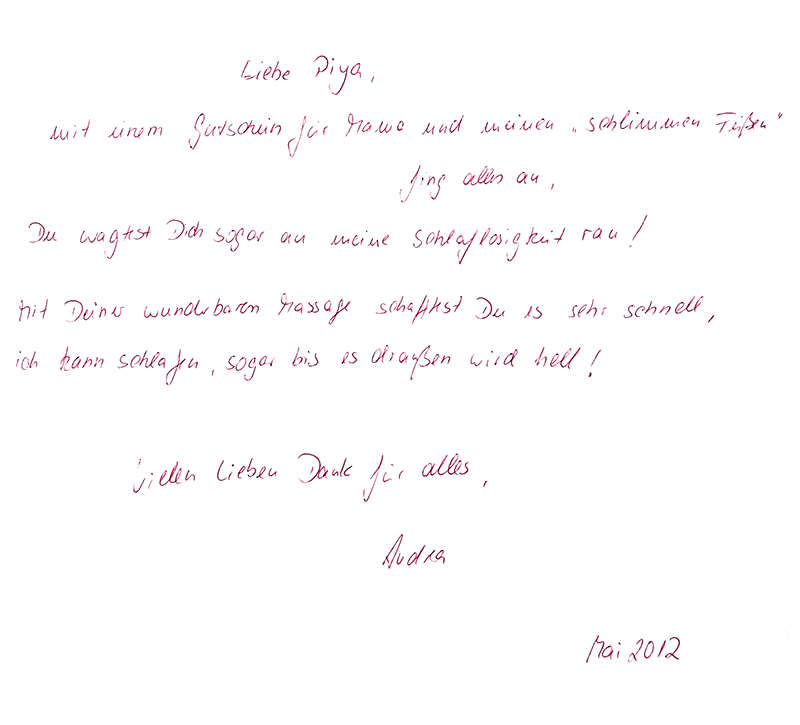 Liebe Piya,
mit einem Gutschein für Mama und meinen „schlimmen Füßen"
fing alles an,
Du wagtest Dich sogar an meine Schlaflosigkeit ran!
Mit Deiner wunderbaren Massage schafftest Du es sehr schnell,
ich kann schlafen, sogar bis es draußen wird hell!
Vielen lieben Dank für alles,
Andrea
Mai 2012